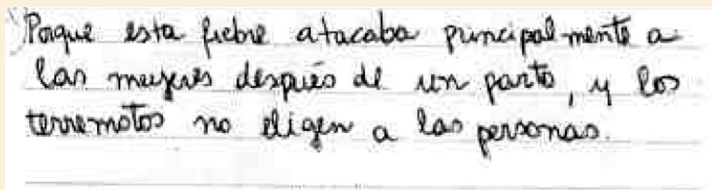 Porque esta fiebre atacaba principalmente a
las mujeres después de un parto, y los
terremotos no eligen a las personas.